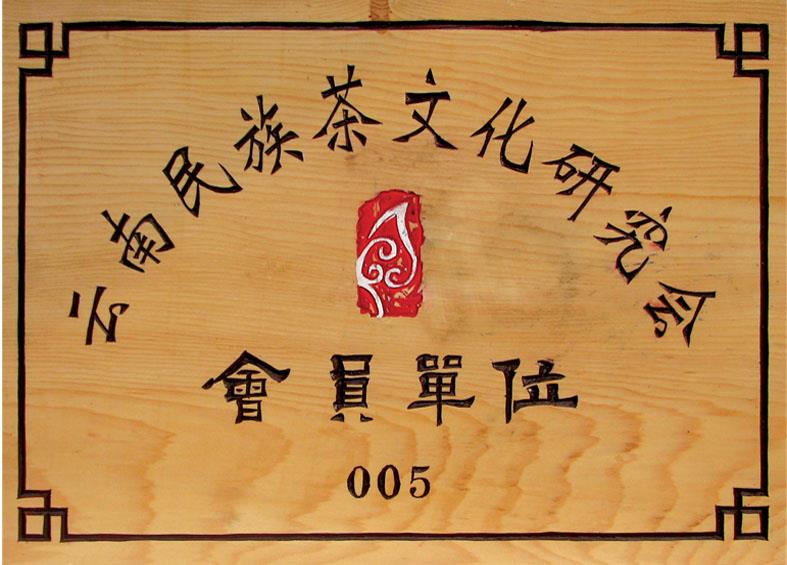 云南民族茶文化研究会
會員單位
005